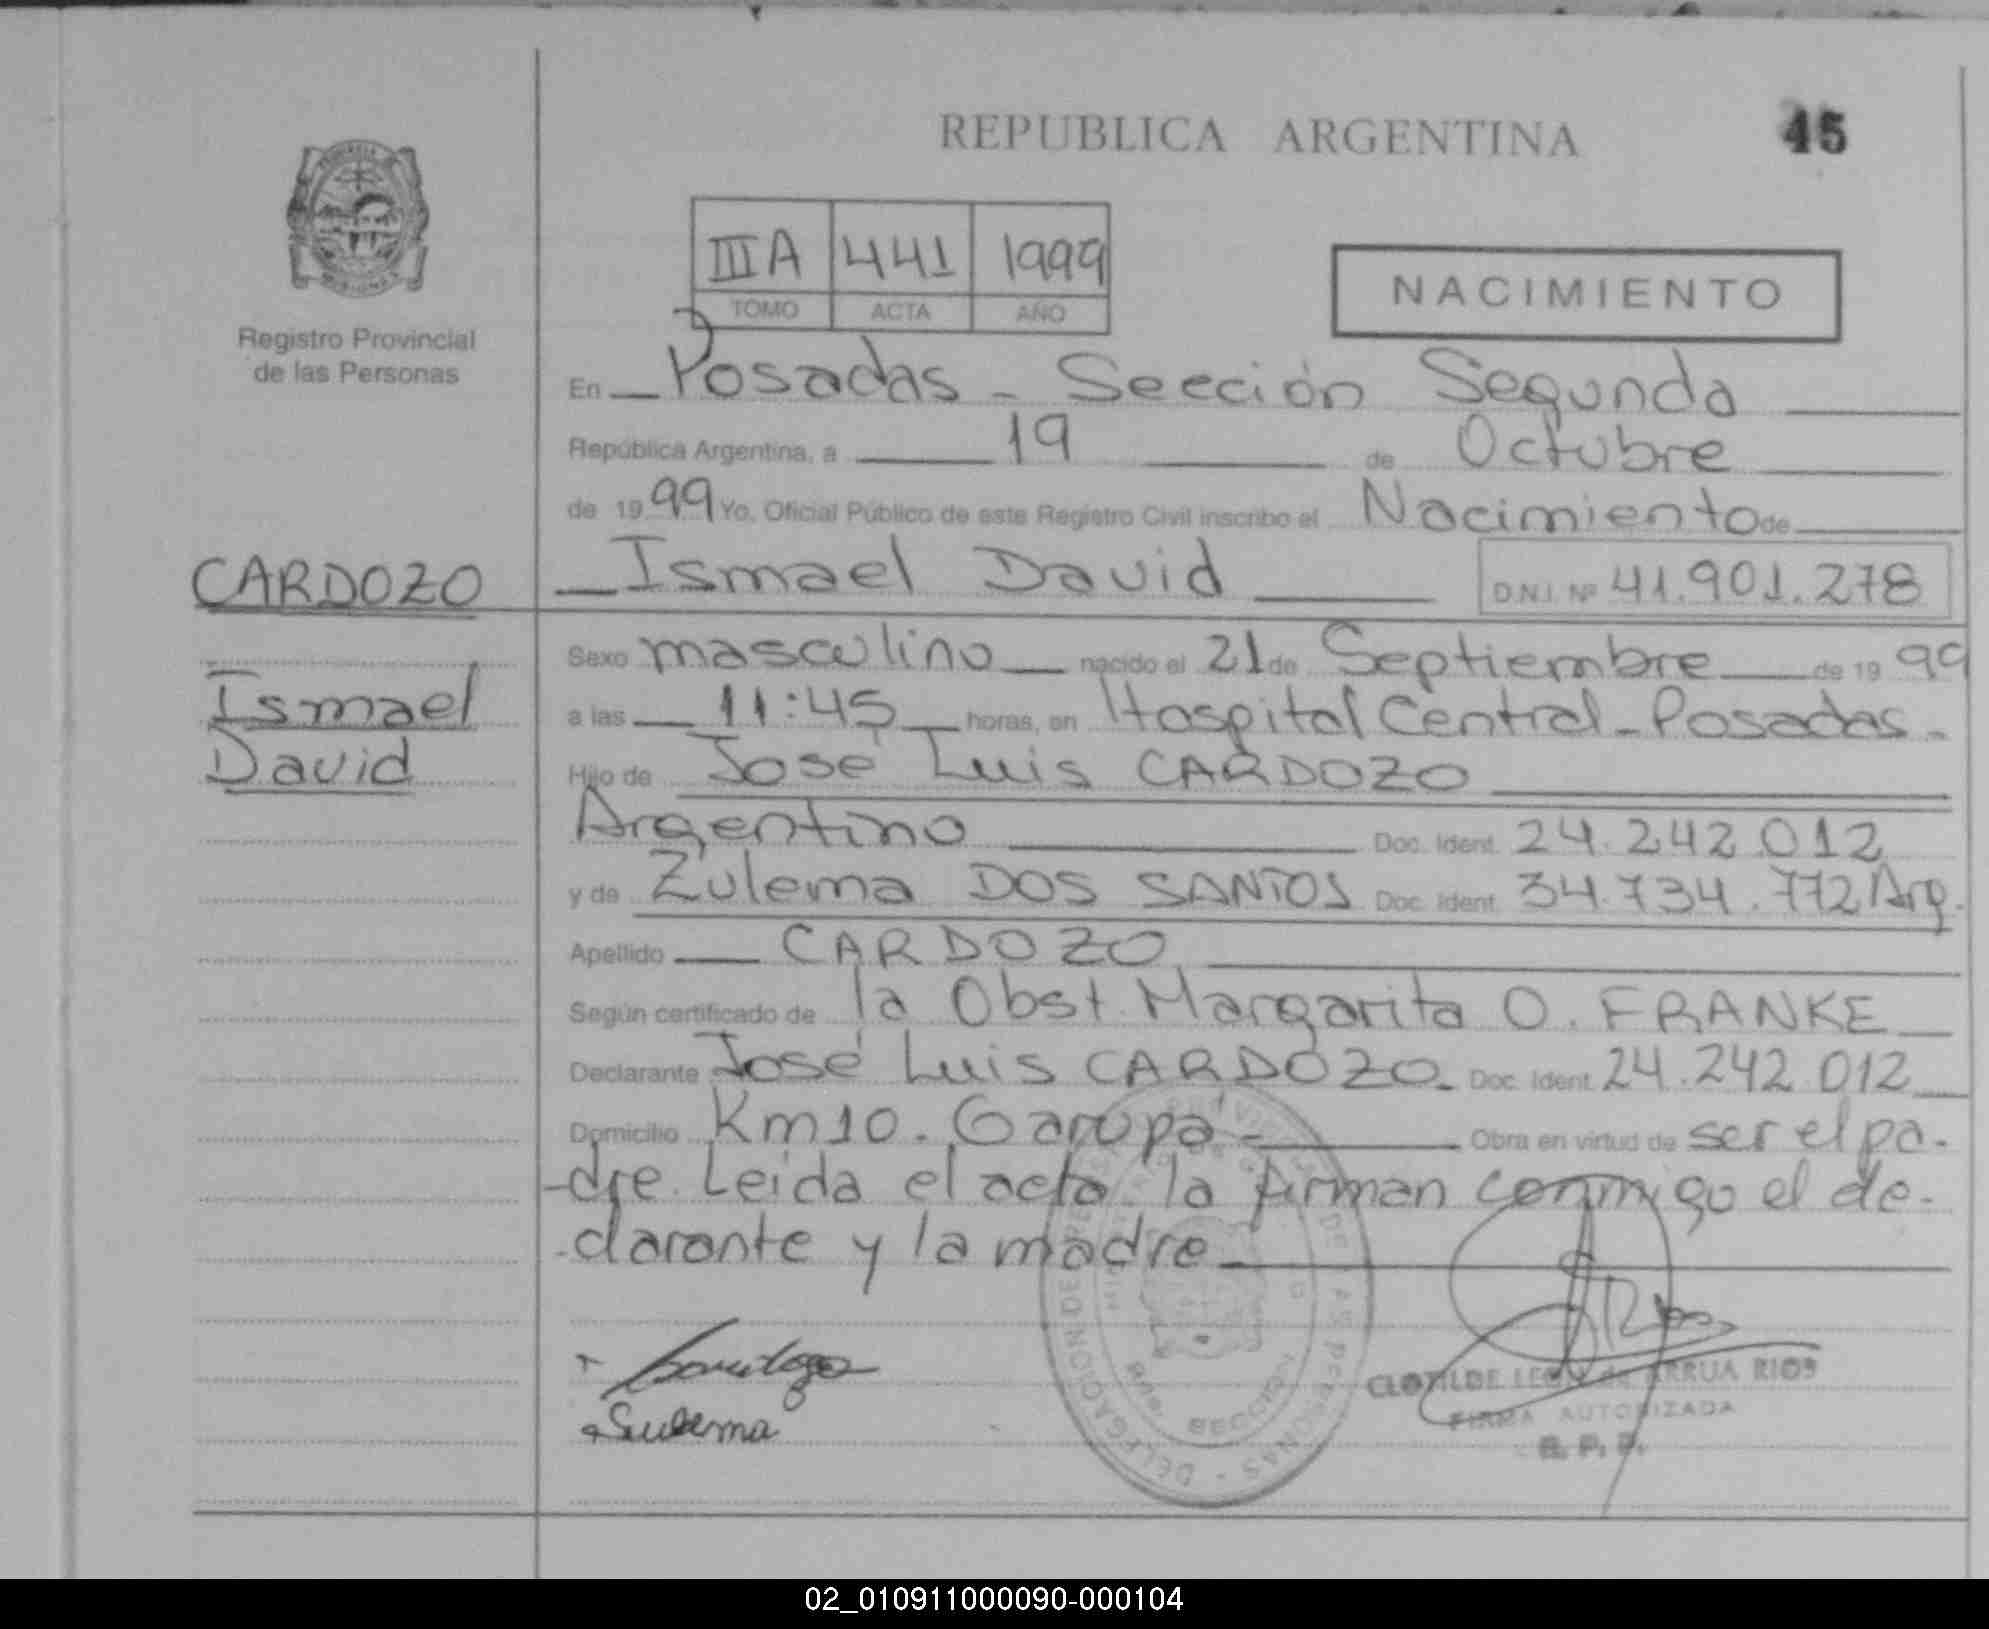 REPUBLICA ARGENTINA
45
IIIA 441 1999
TOMO ACTA AÑO
NACIMIENTO
Registro Provincial
de las Personas
En Posadas - Sección Segunda
República Argentina, a 19 de Octubre
de 1999 Yo, Oficial Público de este Registro Civil inscribo el Nacimiento de
CARDOZO
Ismael David D.N.I. Nº 41.901.278
Sexo masculino nacido el 21 de Septiembre de 1999
Ismael
a las 11:45 horas, en Hospital Central - Posadas -
David
Hijo de José Luis CARDOZO
Argentino Doc. Ident. 24.242.012
y de Zulema DOS SANTOS Doc. Ident. 34.734.772 Arg.
Apellido CARDOZO
Según certificado de la Obst. Margarita O. FRANKE
Declarante José Luis CARDOZO Doc. Ident. 24.242.012
Domicilio Km 10. Garupá - Obra en virtud de ser el pa-
-dre. Leida el acta la firman conmigo el de-
-clarante y la madre
Zulema
CLOTILDE LEON de ARRUA RIOS
FIRMA AUTORIZADA
R. P. P.
02_010911000090-000104